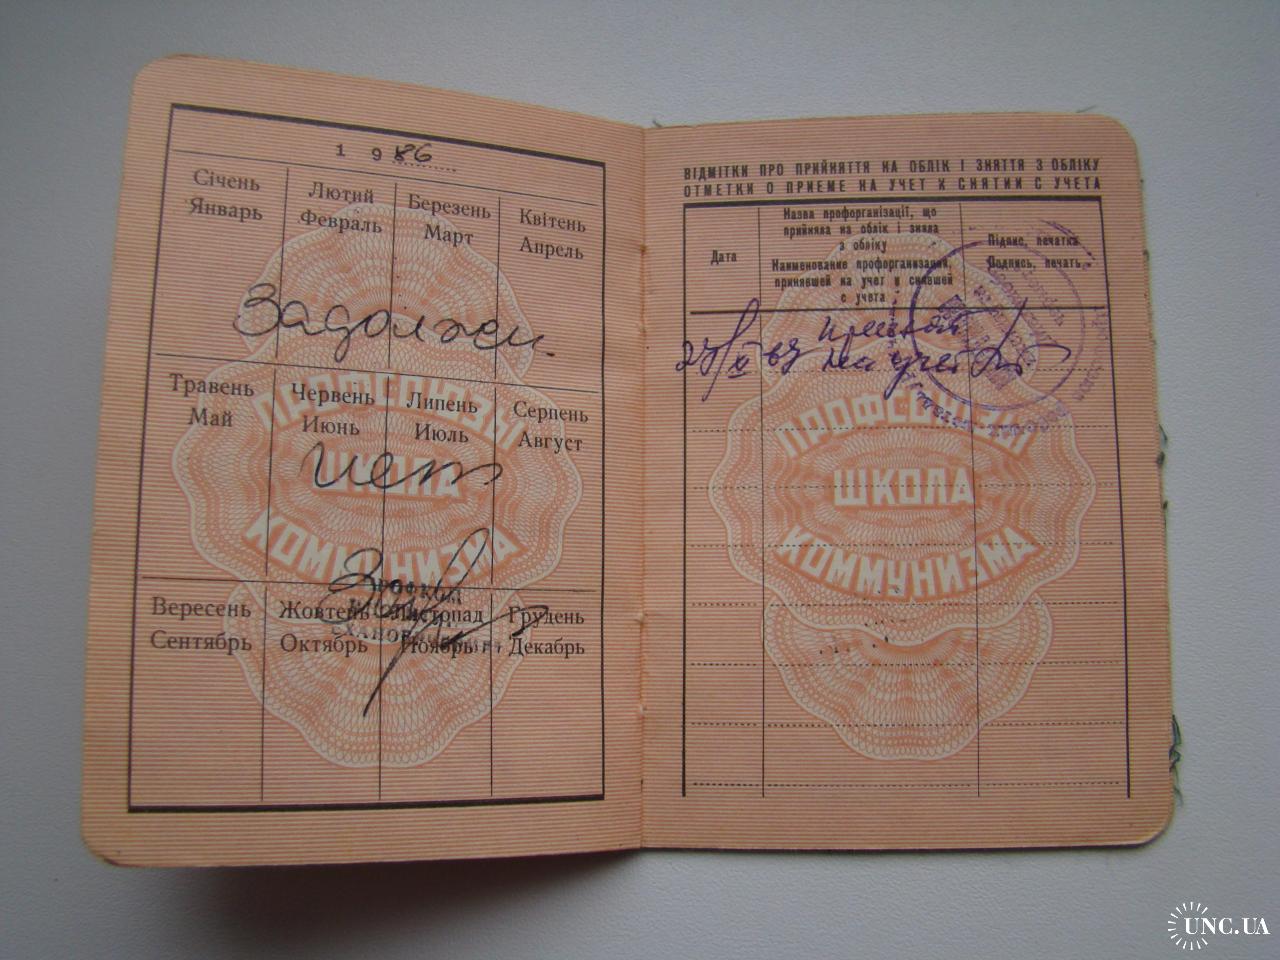 1986
Січень
Январь
Лютий
Февраль
Березень
Март
Квітень
Апрель
Задолжен.
Травень
Май
Червень
Июнь
Липень
Июль
Серпень
Август
нет
ПРОФСОЮЗЫ
ШКОЛА
КОММУНИЗМА
ПРОФКОМ
Вересень
Сентябрь
Жовтень
Октябрь
Листопад
Ноябрь
Грудень
Декабрь
ВІДМІТКИ ПРО ПРИЙНЯТТЯ НА ОБЛІК І ЗНЯТТЯ З ОБЛІКУ
ОТМЕТКИ О ПРИЕМЕ НА УЧЕТ И СНЯТИИ С УЧЕТА
Дата
Назва профорганізації, що
прийняла на облік і зняла
з обліку
Наименование профорганизации,
принявшей на учет и снявшей
с учета
Підпис, печатка
Подпись, печать
на учет
ПРОФСОЮЗЫ
ШКОЛА
КОММУНИЗМА
UNC.UA